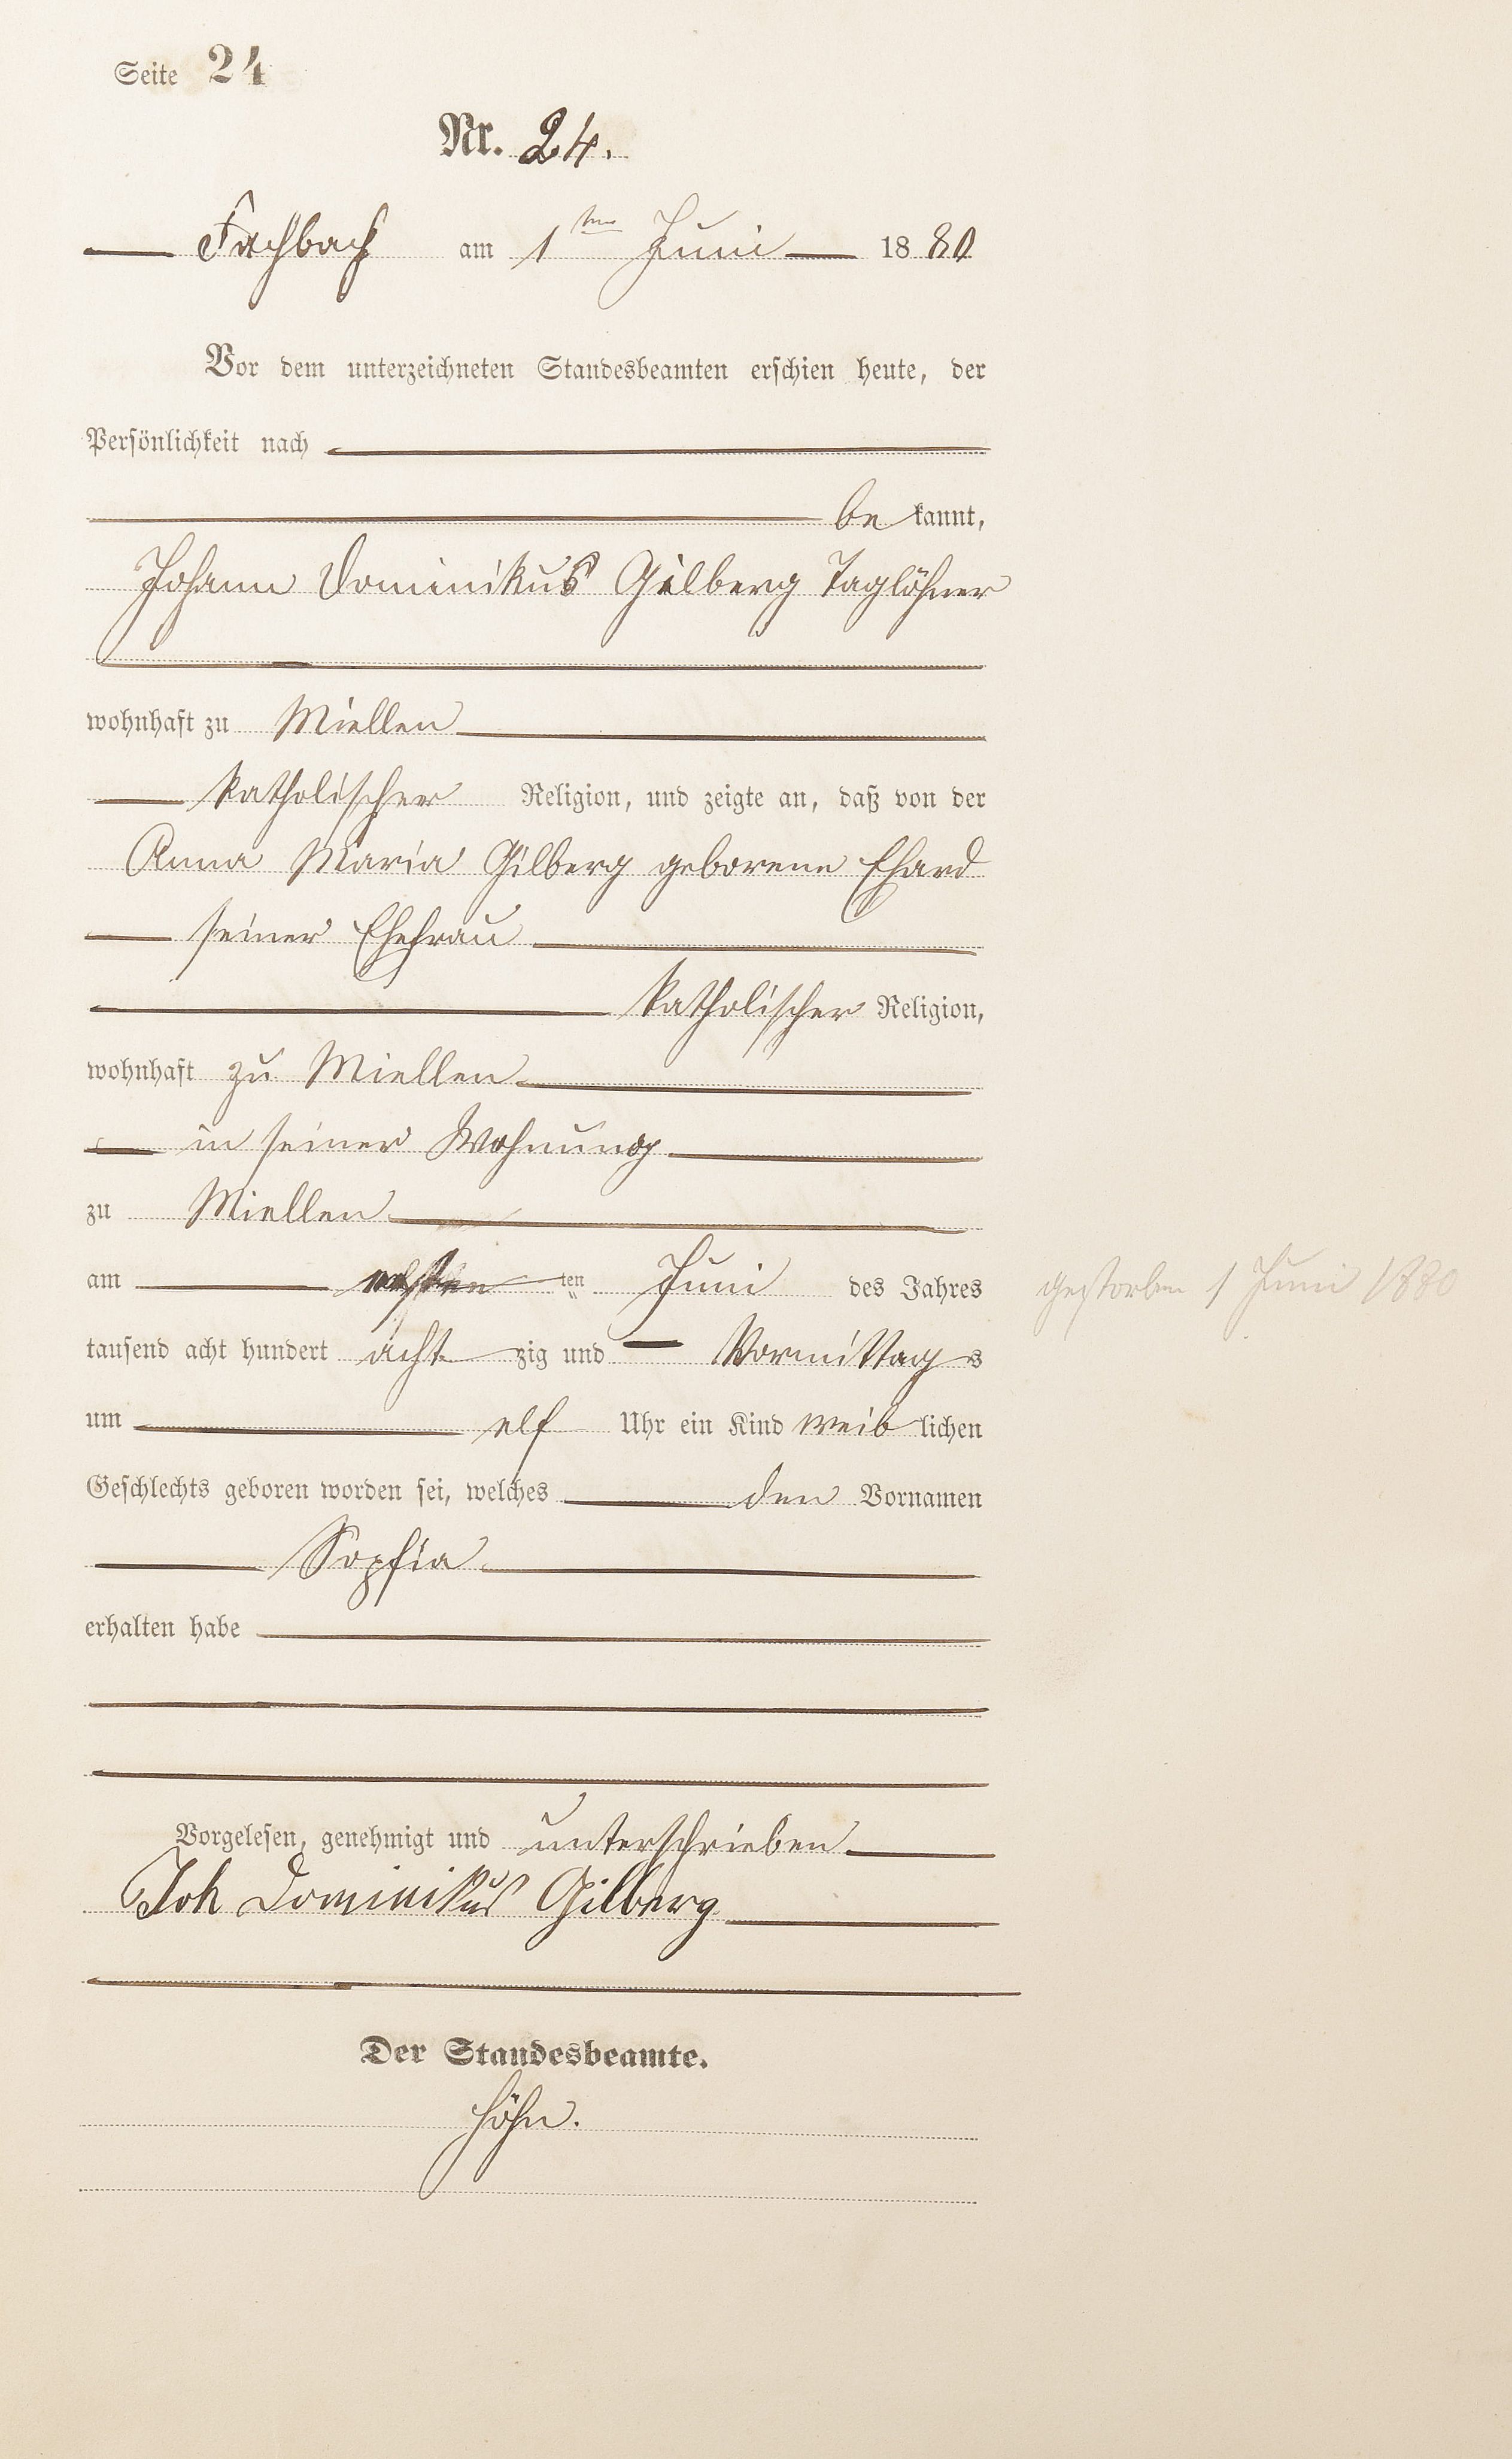 Seite 24
Nr. 24.
Fachbach am 1ten Juni 1880
Vor dem unterzeichneten Standesbeamten erschien heute, der
Persönlichkeit nach
be kannt,
Johann Dominikus Gilberg Taglöhner
wohnhaft zu Miellen
katholischer Religion, und zeigte an, daß von der
Anna Maria Gilberg geborene Ehard
seiner Ehefrau
katholischer Religion,
wohnhaft zu Miellen
in seiner Wohnung
zu Miellen
am ersten ten Juni des Jahres
gestorben 1 Juni 1880
tausend acht hundert acht zig und Vormittags
um elf Uhr ein Kind weiblichen
Geschlechts geboren worden sei, welches den Vornamen
Sopfia
erhalten habe
Vorgelesen, genehmigt und unterschrieben
Joh Dominikus Gilberg
Der Standesbeamte.
Höhn.